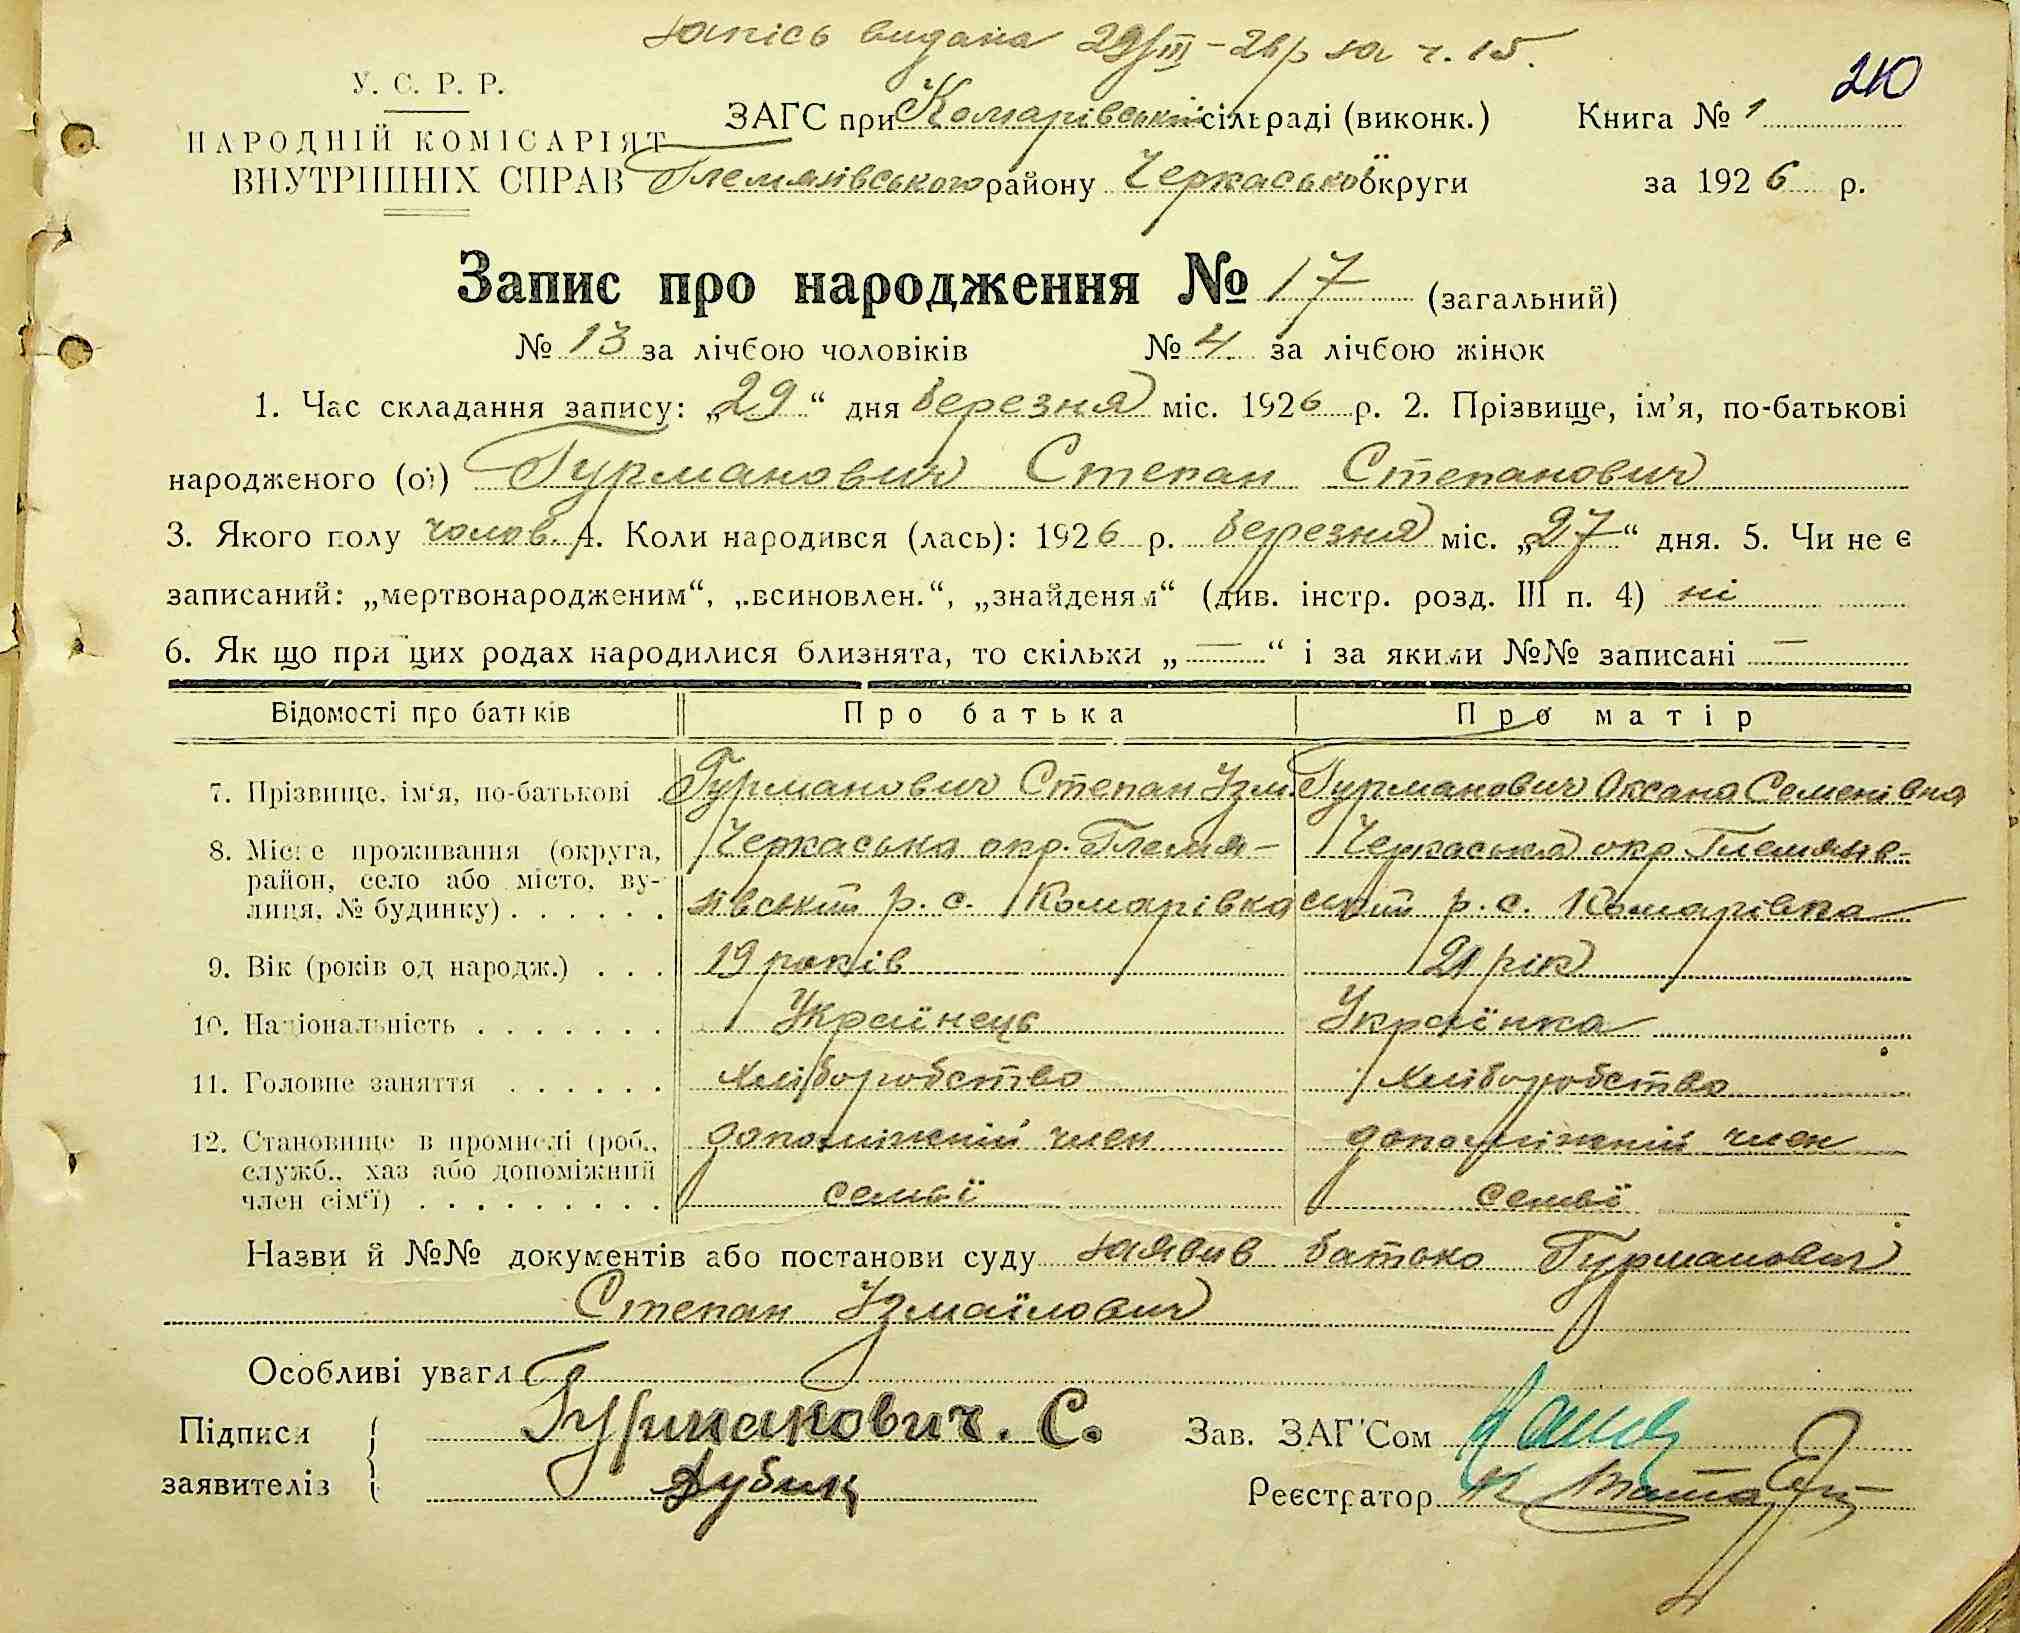 запісь видана 29/III-26 р за ч. 15.
210
У. С. Р. Р.
НАРОДНІЙ КОМІСАРІЯТ
ВНУТРІШНІХ СПРАВ
ЗАГС при Комарівській сільраді (виконк.) Книга № 1
Глемязівського району Черкаської округи за 1926 р.
Запис про народження № 17 (загальний)
№ 13 за лічбою чоловіків № 4 за лічбою жінок
1. Час складання запису: „29“ дня березня міс. 1926 р. 2. Прізвище, ім'я, по-батькові
народженого (ої) Гурманович Степан Степанович
3. Якого полу чолов. 4. Коли народився (лась): 1926 р. березня міс. „27“ дня. 5. Чи не є
записаний: „мертвонародженим“, „всиновлен.“, „знайденям“ (див. інстр. розд. III п. 4) ні
6. Як що при цих родах народилися близнята, то скільки „—“ і за якими №№ записані —
Відомості про батьків Про батька Про матір
7. Прізвище, ім'я, по-батькові Гурманович Степан Ізм. Гурманович Оксана Семенівна
8. Місце проживання (округа, район, село або місто, вулиця, № будинку) Черкаська окр. Глемязівський р. с. Комарівка Черкаська окр. Глемязівський р. с. Комарівка
9. Вік (років од народж.) 19 років 21 рік
10. Національність Українець Українка
11. Головне заняття хліборобство хліборобство
12. Становище в промислі (роб., служб., хаз або допоміжний член сім'ї) допоміжний член семьї допоміжний член семьї
Назви й №№ документів або постанови суду заявив батько Гурманович
Степан Ізмаїлович
Особливі уваги
Підписи заявителів Гурманович. С.
Зав. ЗАГ'Сом
Реєстратор